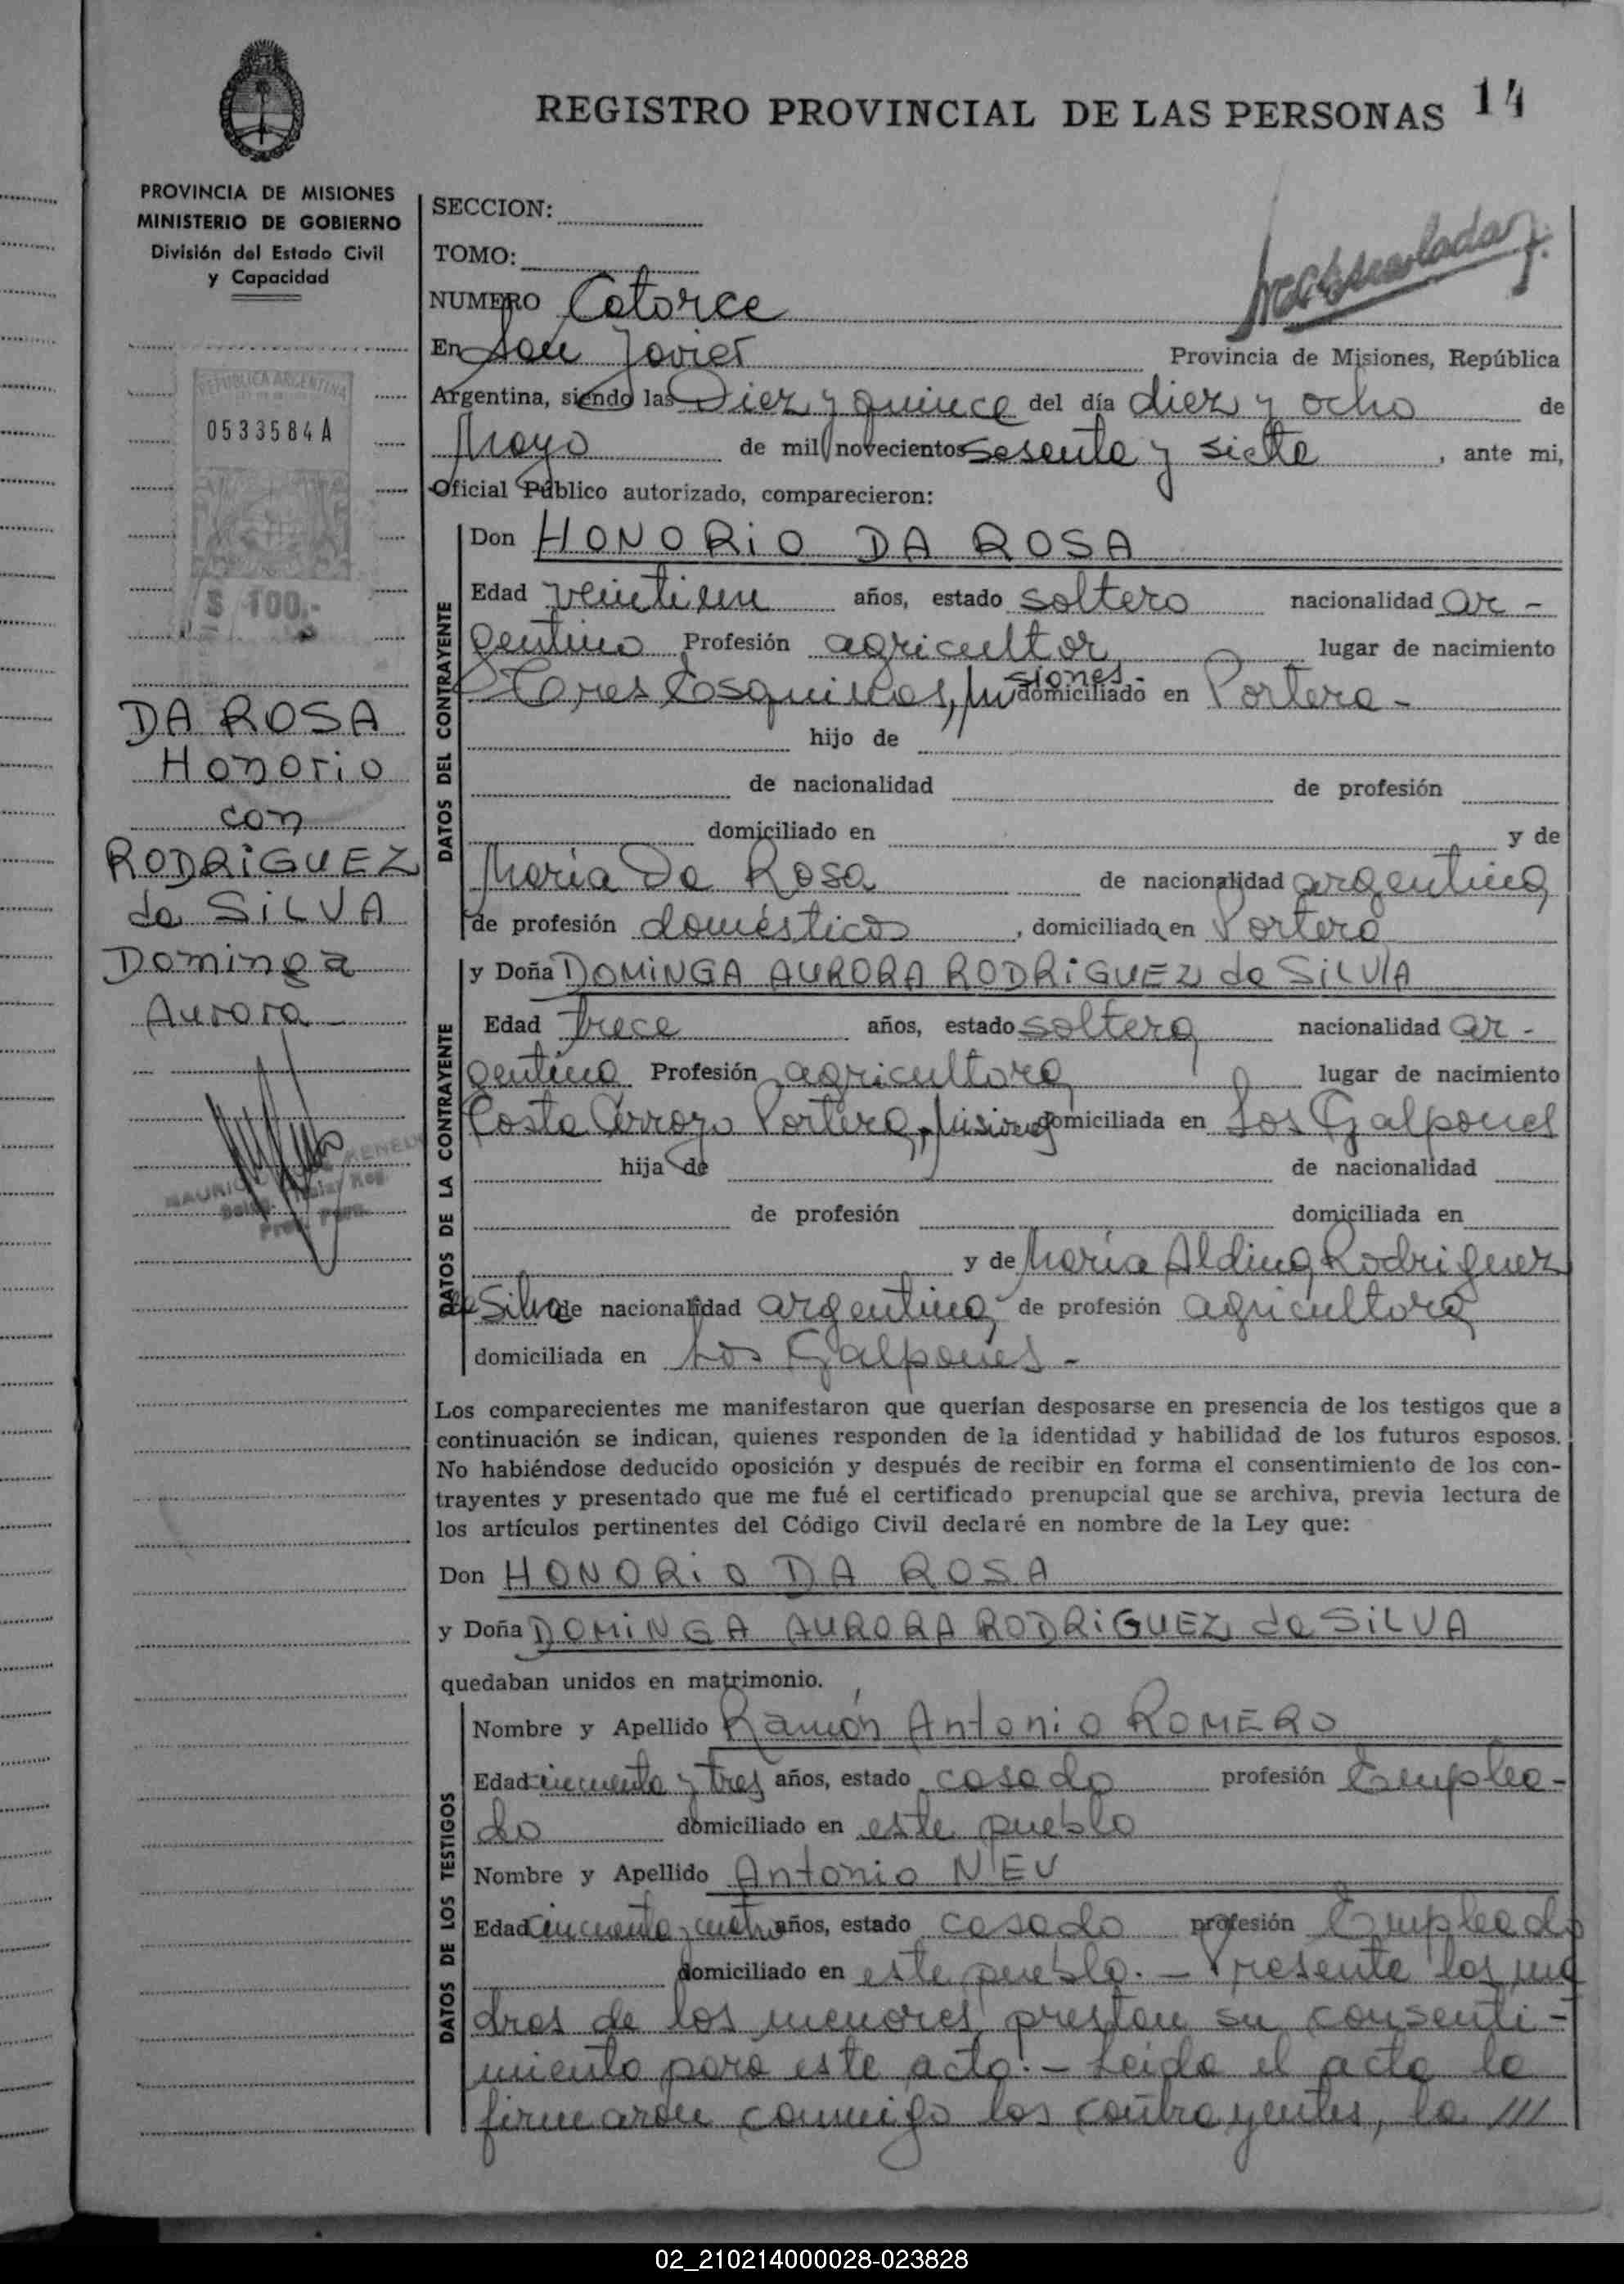 REGISTRO PROVINCIAL DE LAS PERSONAS 14
PROVINCIA DE MISIONES
MINISTERIO DE GOBIERNO
División del Estado Civil
y Capacidad
REPUBLICA ARGENTINA
0533584 A
$ 100.-
DA ROSA
Honorio
con
RODRiGUEZ
da SiLVA
Dominga
Aurora
SECCION:
TOMO:
NUMERO Catorce
En San Javier Provincia de Misiones, República
Argentina, siendo las Diez y quince del día diez y ocho de
Mayo de mil novecientos sesenta y siete, ante mi,
Oficial Público autorizado, comparecieron:
DATOS DEL CONTRAYENTE
Don HONORiO DA ROSA
Edad veintiun años, estado soltero nacionalidad ar-
gentino Profesión agricultor lugar de nacimiento
Tres Esquinas, Misiones.- domiciliado en Portera-
hijo de
de nacionalidad de profesión
domiciliado en y de
María Da Rosa de nacionalidad argentina
de profesión doméstica, domiciliada en Portera
DATOS DE LA CONTRAYENTE
y Doña DOMiNGA AURORA RODRiGUEZ da SiLVA
Edad trece años, estado soltera nacionalidad ar-
gentina Profesión agricultora lugar de nacimiento
Costa Arroyo Portera, Misiones domiciliada en Los Galpones
hija de de nacionalidad
de profesión domiciliada en
y de María Aldina Rodriguez
da Silva de nacionalidad argentina, de profesión agricultora
domiciliada en Los Galpones-
Los comparecientes me manifestaron que querían desposarse en presencia de los testigos que a
continuación se indican, quienes responden de la identidad y habilidad de los futuros esposos.
No habiéndose deducido oposición y después de recibir en forma el consentimiento de los con-
trayentes y presentado que me fué el certificado prenupcial que se archiva, previa lectura de
los artículos pertinentes del Código Civil declaré en nombre de la Ley que:
Don HONORiO DA ROSA
y Doña DOMiNGA AURORA RODRiGUEZ da SiLVA
quedaban unidos en matrimonio.
DATOS DE LOS TESTIGOS
Nombre y Apellido Ramón Antonio ROMERO
Edad cincuenta y tres años, estado casado profesión Emplea-
do domiciliado en este pueblo
Nombre y Apellido Antonio NEU
Edad cincuenta y cuatro años, estado casado profesión Empleado
domiciliado en este pueblo.- Presente las ma
dres de los menores, prestan su consenti-
miento para este acto.- Leida el acta la
firmaron conmigo los contrayentes, la ///
02_210214000028-023828